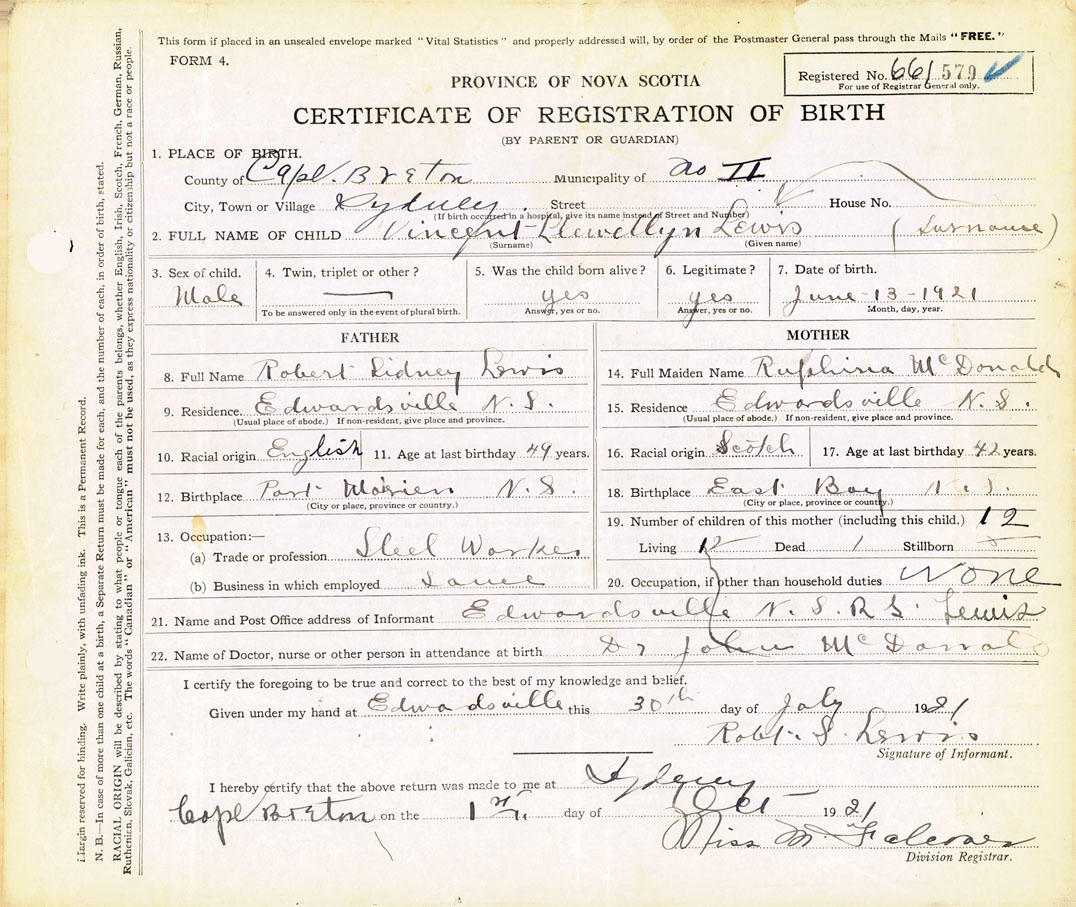 This form if placed in an unsealed envelope marked "Vital Statistics" and properly addressed will, by order of the Postmaster General pass through the Mails "FREE."
FORM 4.
Registered No. 661 579
For use of Registrar General only.
PROVINCE OF NOVA SCOTIA
CERTIFICATE OF REGISTRATION OF BIRTH
(BY PARENT OR GUARDIAN)
1. PLACE OF BIRTH.
County of Cape Breton Municipality of No II
City, Town or Village Sydney. Street House No.
(If birth occurred in a hospital, give its name instead of Street and Number)
2. FULL NAME OF CHILD Vincent Llewellyn Lewis (Surname)
(Surname) (Given name)
3. Sex of child. 4. Twin, triplet or other? 5. Was the child born alive? 6. Legitimate? 7. Date of birth.
Male — yes yes June-13-1921
To be answered only in the event of plural birth. Answer, yes or no. Answer, yes or no. Month, day, year.
FATHER
8. Full Name Robert Sidney Lewis
9. Residence. Edwardsville N.S.
(Usual place of abode.) If non-resident, give place and province.
10. Racial origin English 11. Age at last birthday 49 years.
12. Birthplace Port Morien N.S.
(City or place, province or country.)
13. Occupation:—
(a) Trade or profession Steel Worker
(b) Business in which employed Same
MOTHER
14. Full Maiden Name Ruphina McDonald
15. Residence Edwardsville N.S.
(Usual place of abode.) If non-resident, give place and province.
16. Racial origin Scotch 17. Age at last birthday 42 years.
18. Birthplace East Bay N.S.
(City or place, province or country.)
19. Number of children of this mother (including this child.) 12
Living Dead 1 Stillborn
20. Occupation, if other than household duties None
21. Name and Post Office address of Informant Edwardsville N.S. R S. Lewis
22. Name of Doctor, nurse or other person in attendance at birth Dr John McDonald
I certify the foregoing to be true and correct to the best of my knowledge and belief.
Given under my hand at Edwardsville this 30th day of July 1921
Robt. S. Lewis
Signature of Informant.
I hereby certify that the above return was made to me at Sydney
Cape Breton on the day of Oct 1921
Miss M. Falconer
Division Registrar.
Margin reserved for binding. Write plainly, with unfading ink. This is a Permanent Record.
N. B.—In case of more than one child at a birth, a Separate Return must be made for each, and the number of each, in order of birth, stated.
RACIAL ORIGIN will be described by stating to what people or tongue each of the parents belongs, whether English, Irish, Scotch, French, German, Russian,
Ruthenien, Slovak, Galician, etc. The words "Canadian" or "American" must not be used, as they express nationality or citizenship but not a race or people.